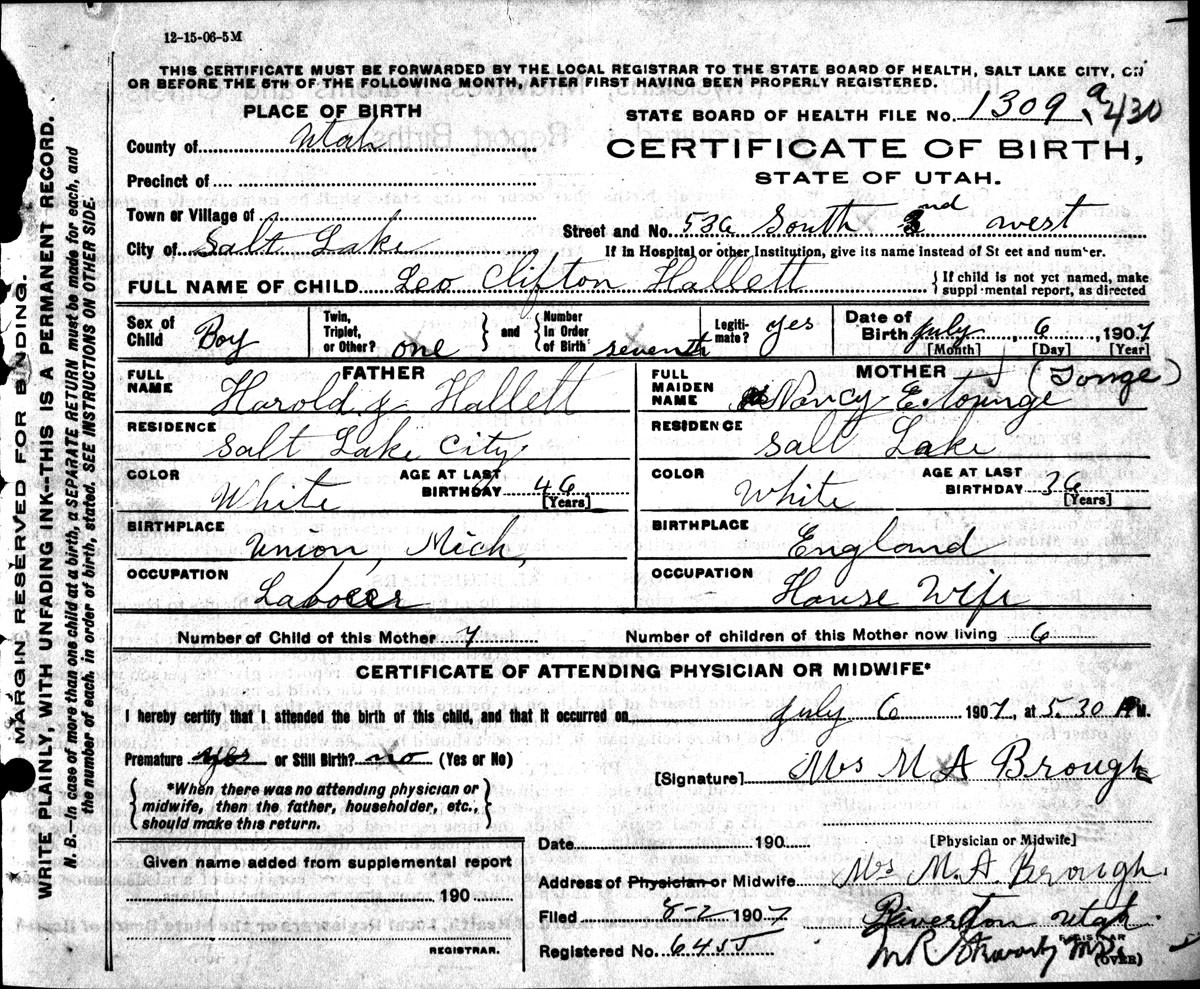 12-15-06-5M
THIS CERTIFICATE MUST BE FORWARDED BY THE LOCAL REGISTRAR TO THE STATE BOARD OF HEALTH, SALT LAKE CITY, ON
OR BEFORE THE 5TH OF THE FOLLOWING MONTH, AFTER FIRST HAVING BEEN PROPERLY REGISTERED.
PLACE OF BIRTH
STATE BOARD OF HEALTH FILE No. 1309 a 430
County of Utah
CERTIFICATE OF BIRTH,
STATE OF UTAH.
Precinct of
Town or Village of
Street and No. 536 South 2nd west
City of Salt Lake
If in Hospital or other Institution, give its name instead of St eet and number.
FULL NAME OF CHILD Leo Clifton Hallett
{ If child is not yet named, make
suppl mental report, as directed
Sex of Child Boy
Twin, Triplet, or Other? one } and { Number In Order of Birth seventh
Legiti-mate? yes
Date of Birth July 6, 1907
[Month] [Day] [Year]
FATHER
FULL NAME Harold J. Hallett
RESIDENCE Salt Lake City
COLOR White AGE AT LAST BIRTHDAY 46 [Years]
BIRTHPLACE Union, Mich,
OCCUPATION Laborer
MOTHER (Tonge)
FULL MAIDEN NAME Nancy E. Tounge
RESIDENCE Salt Lake
COLOR White AGE AT LAST BIRTHDAY 36 [Years]
BIRTHPLACE England
OCCUPATION House Wife
Number of Child of this Mother 7 Number of children of this Mother now living 6
CERTIFICATE OF ATTENDING PHYSICIAN OR MIDWIFE*
I hereby certify that I attended the birth of this child, and that it occurred on July 6 1907, at 5.30 M.
Premature yes or Still Birth? no (Yes or No)
{ *When there was no attending physician or
midwife, then the father, householder, etc.,
should make this return. }
[Signature] Mrs M A Brough
[Physician or Midwife]
Given name added from supplemental report
190
REGISTRAR.
Date 190
Address of Physician or Midwife Mrs M. A Brough.
Riverton Utah.
Filed 8-2 1907
Registered No. 6455
REGISTRAR
(OVER)
MARGIN RESERVED FOR BINDING.
WRITE PLAINLY, WITH UNFADING INK--THIS IS A PERMANENT RECORD.
N. B.--In case of more than one child at a birth, a SEPARATE RETURN must be made for each, and
the number of each, in order of birth, stated. SEE INSTRUCTIONS ON OTHER SIDE.